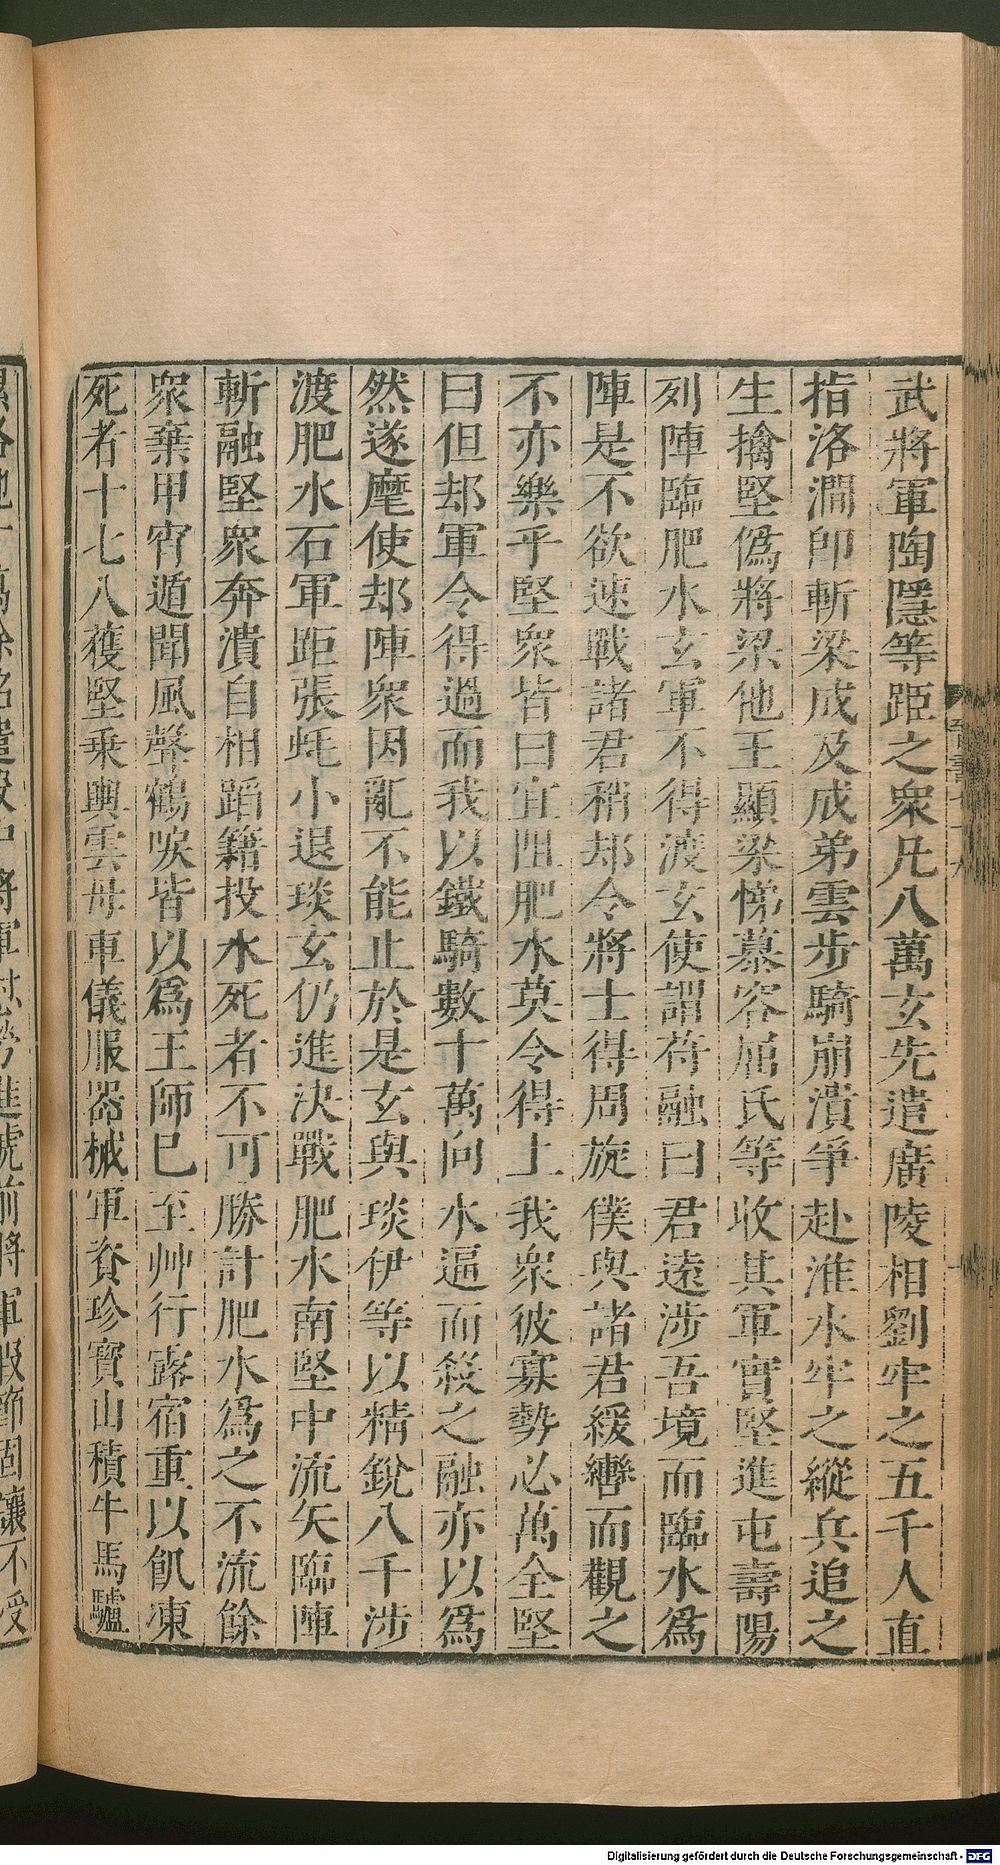 武將軍陶隱等距之衆凡八萬玄先遣廣陵相劉牢之五千人直
指洛澗卽斬梁成及成弟雲步騎崩潰爭赴淮水牢之縱兵追之
生擒堅僞將梁他王顯梁悌慕容屈氏等收其軍實堅進屯壽陽
列陣臨肥水玄軍不得渡玄使謂苻融曰君遠涉吾境而臨水爲
陣是不欲速戰諸君稍却令將士得周旋僕與諸君緩轡而觀之
不亦樂乎堅衆皆曰宜阻肥水莫令得上我衆彼寡勢必萬全堅
曰但却軍令得過而我以鐵騎數十萬向水逼而殺之融亦以爲
然遂麾使却陣衆因亂不能止於是玄與琰伊等以精銳八千涉
渡肥水石軍距張蚝小退琰玄仍進決戰肥水南堅中流矢臨陣
斬融堅衆奔潰自相蹈籍投水死者不可勝計肥水爲之不流餘
衆棄甲宵遁聞風聲鶴唳皆以爲王師已至艸行露宿重以飢凍
死者十七八獲堅乗輿雲母車儀服器械軍資珍寶山積牛馬驢
將軍
進號前將軍假節固讓不受
Digitalisierung gefördert durch die Deutsche Forschungsgemeinschaft - DFG